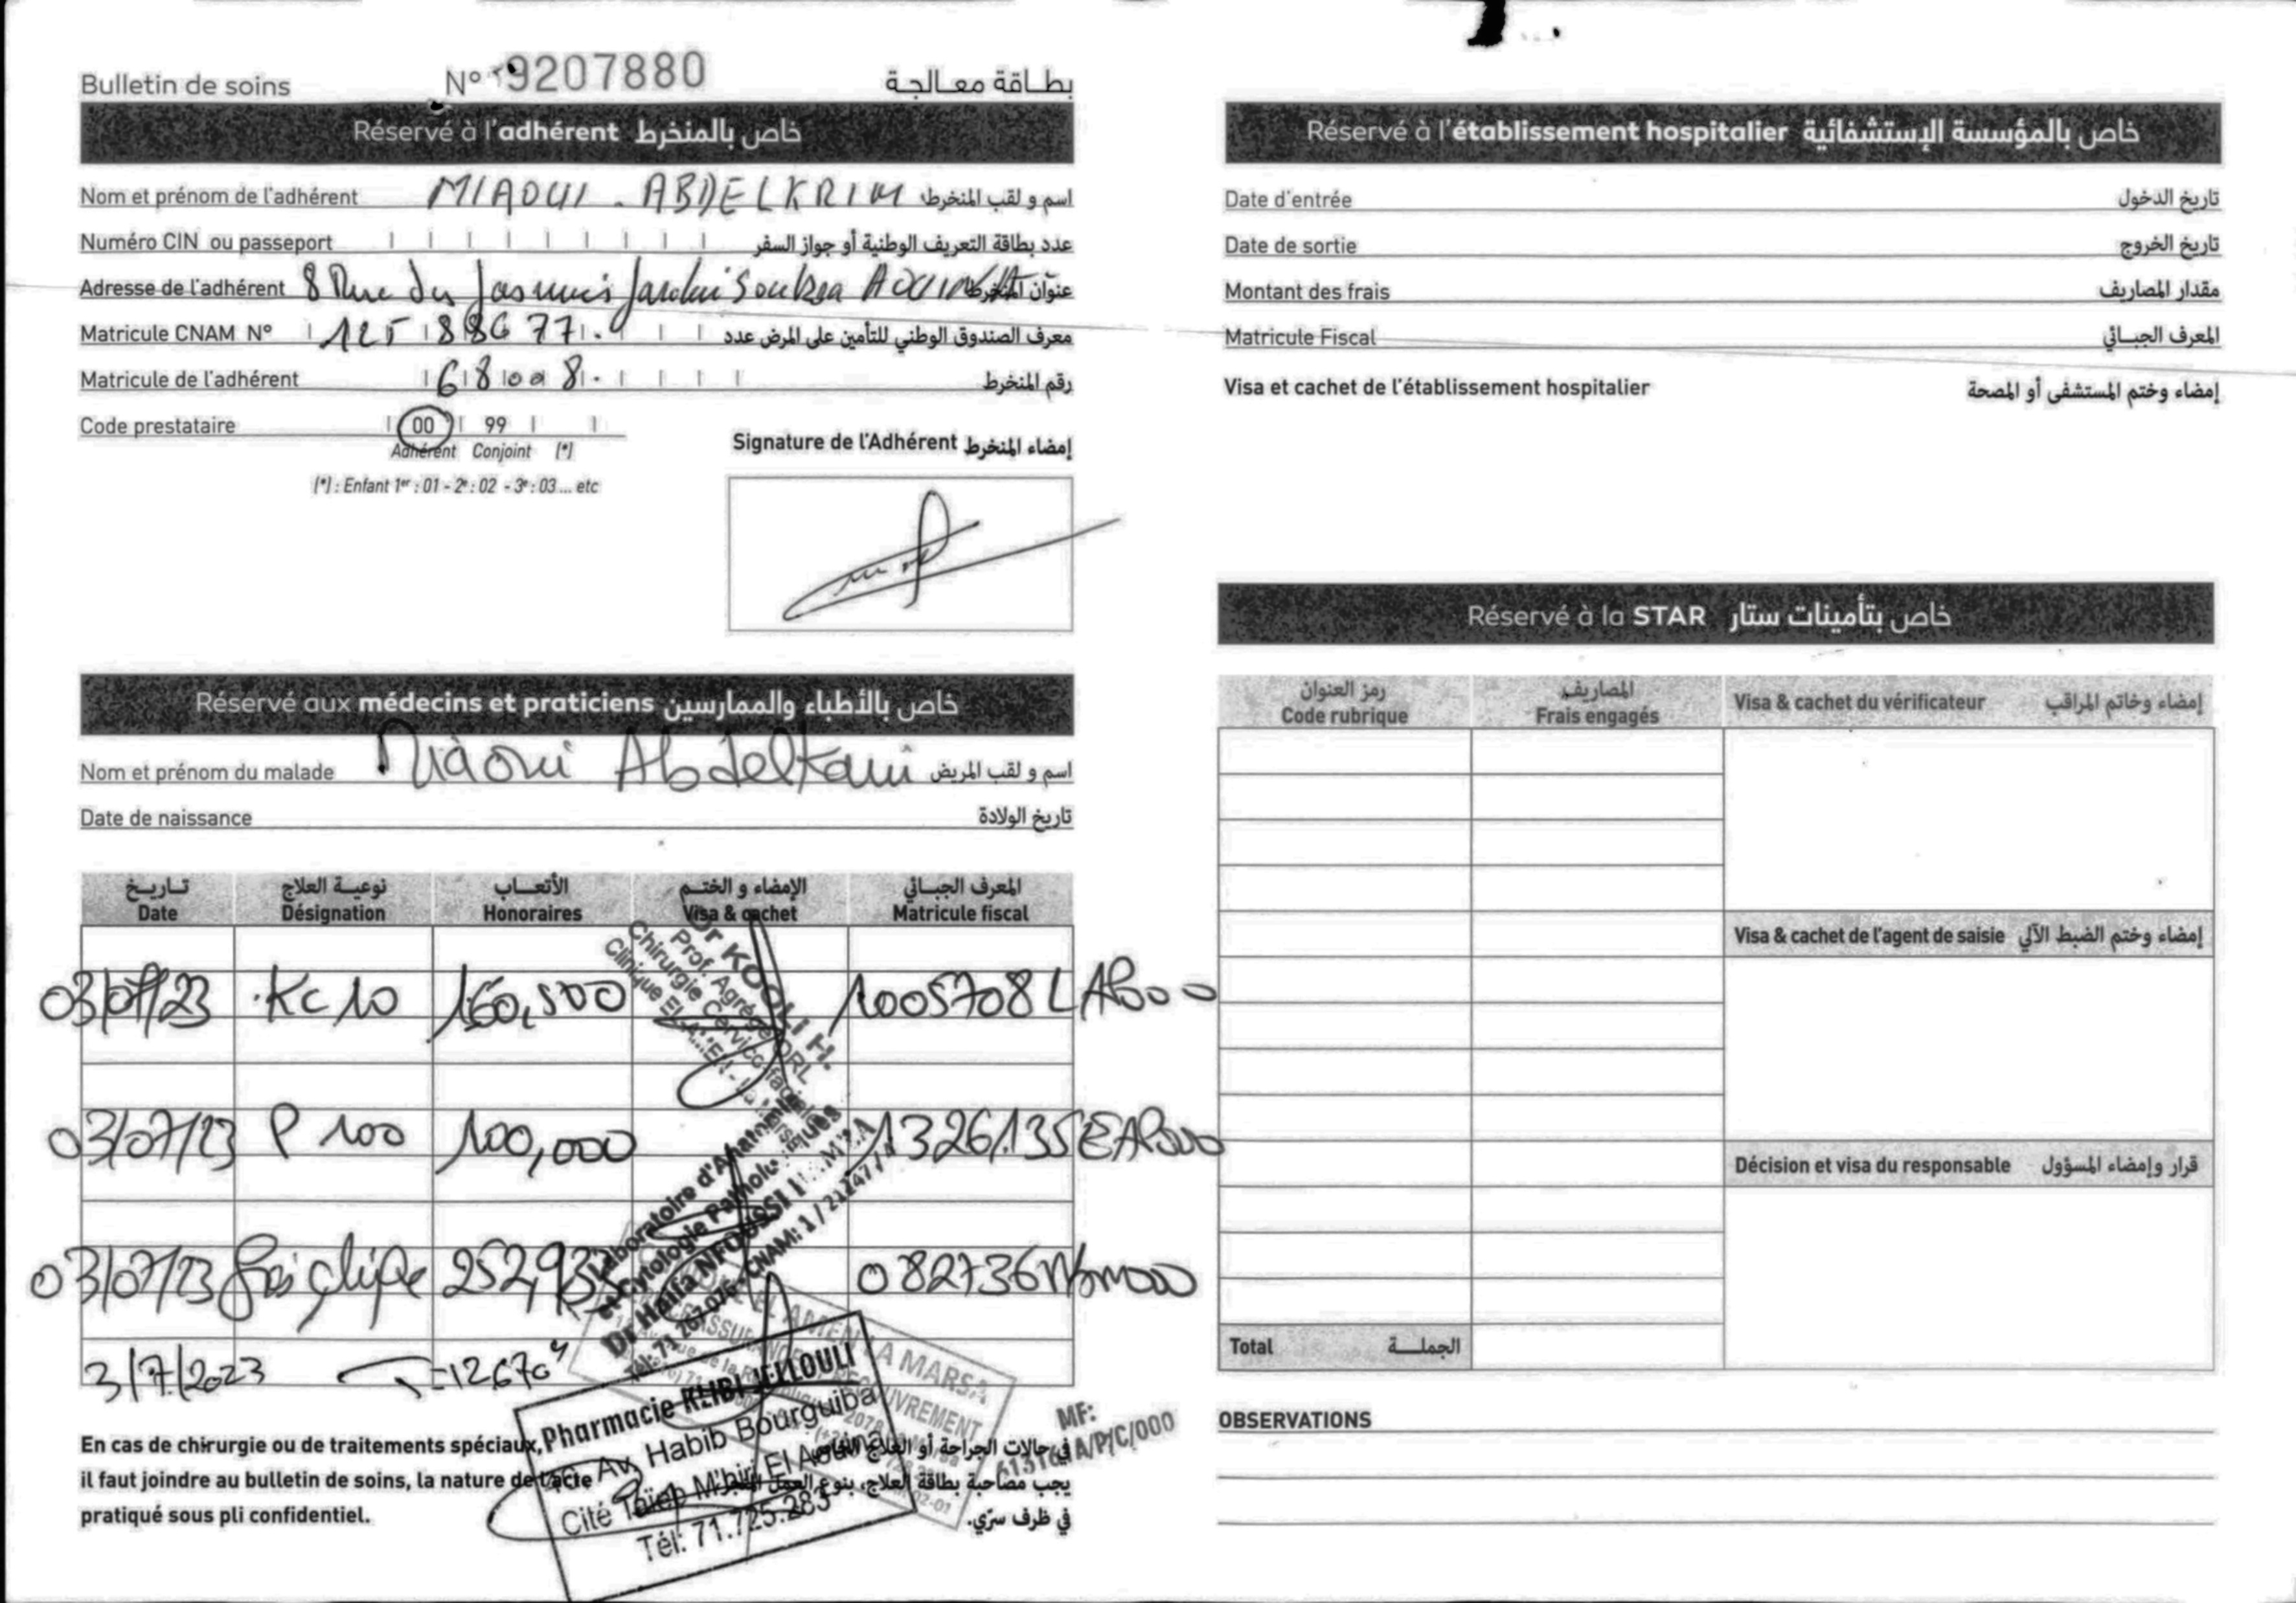 Bulletin de soins N° 9207880 بطاقة معالجة
Réservé à l'adhérent خاص بالمنخرط
Nom et prénom de l'adhérent MIAOUI - ABDELKRIM اسم و لقب المنخرط
Numéro CIN ou passeport عدد بطاقة التعريف الوطنية أو جواز السفر
Adresse de l'adhérent 8 Rue des Jasmins Jardin Soukra AOUINA عنوان المنخرط
Matricule CNAM N° معرف الصندوق الوطني للتأمين على المرض عدد
Matricule de l'adhérent رقم المنخرط
Code prestataire 00 99
Adhérent Conjoint (*)
(*) : Enfant 1er : 01 - 2e : 02 - 3e : 03 ... etc
Signature de l'Adhérent إمضاء المنخرط
Réservé aux médecins et praticiens خاص بالأطباء والممارسين
Nom et prénom du malade Miaoui Abdelkrim اسم و لقب المريض
Date de naissance تاريخ الولادة
تاريخ نوعية العلاج الأتعاب الإمضاء و الختم المعرف الجبائي
Date Désignation Honoraires Visa & cachet Matricule fiscal
03/07/23 KC 10 160,500 1005708LAP000
03/07/23 P 100 100,000 1326135EAP000
03/07/23 frais clinique
3/7/2023 12,670
Dr KOOLI H.
Prof. Agrégé ORL
Chirurgie Cervico faciale
Clinique EL AMEN
Laboratoire d'Anatomie
et Cytologie Pathologiques
Dr Haïfa
EL AMEN LA MARSA
Pharmacie KLIBI JELLOULI
Av. Habib Bourguiba
Cité Taïeb M'hiri El Aouina
Tél: 71.725.283
MF:
En cas de chirurgie ou de traitements spéciaux,
il faut joindre au bulletin de soins, la nature de l'acte
pratiqué sous pli confidentiel.
في حالات الجراحة أو العلاج الخاص
يجب مصاحبة بطاقة العلاج، بنوع العمل
في ظرف سرّي.
Réservé à l'établissement hospitalier خاص بالمؤسسة الإستشفائية
Date d'entrée تاريخ الدخول
Date de sortie تاريخ الخروج
Montant des frais مقدار المصاريف
Matricule Fiscal المعرف الجبائي
Visa et cachet de l'établissement hospitalier إمضاء وختم المستشفى أو المصحة
Réservé à la STAR خاص بتأمينات ستار
رمز العنوان المصاريف
Code rubrique Frais engagés Visa & cachet du vérificateur إمضاء وخاتم المراقب
Visa & cachet de l'agent de saisie إمضاء وختم الضبط الآلي
Décision et visa du responsable قرار وإمضاء المسؤول
Total الجملة
OBSERVATIONS